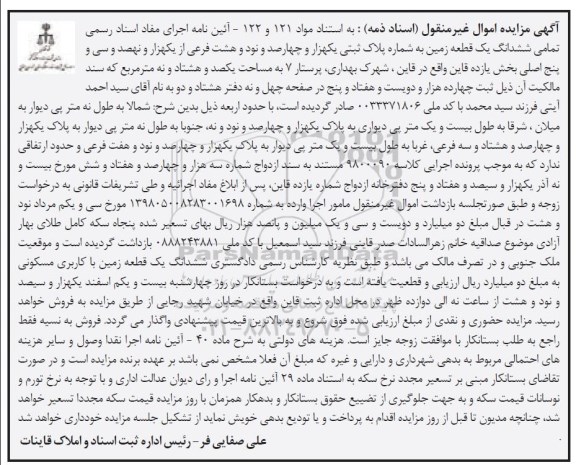 آگهی مزایده اموال غیرمنقول (اسناد ذمه) : به استناد مواد ۱۲۱ و ۱۲۲ - آئین نامه اجرای مفاد اسناد رسمی
تمامی ششدانگ یک قطعه زمین به شماره پلاک ثبتی یکهزار و چهارصد و نود و هشت فرعی از یکهزار و نهصد و سی و
پنج اصلی بخش یازده قاین واقع در قاین ، شهرک بهداری، پرستار ۷ به مساحت یکصد و هشتاد و نه مترمربع که سند
مالکیت آن ذیل ثبت چهارده هزار و دویست و هفتاد و پنج در صفحه چهل و نه دفتر هشتاد و دو به نام آقای سید احمد
آیتی فرزند سید محمد با کد ملی ۰۰۳۳۳۷۱۸۰۶ صادر گردیده است، با حدود اربعه ذیل بدین شرح: شمالا به طول نه متر پی دیوار به
میلان ، شرقا به طول بیست و یک متر پی دیواری به پلاک یکهزار و چهارصد و نود و نه، جنوبا به طول نه متر پی دیوار به پلاک یکهزار
و چهارصد و هشتاد و سه فرعی، غربا به طول بیست و یک متر پی دیوار به پلاک یکهزار و چهارصد و نود و هفت فرعی و حدود ارتفاقی
ندارد که به موجب پرونده اجرایی کلاسه ۹۸۰۰۰۹۰ مستند به سند ازدواج شماره سه هزار و چهارصد و هفتاد و شش مورخ بیست و
نه آذر یکهزار و سیصد و هفتاد و پنج دفترخانه ازدواج شماره یازده قاین، پس از ابلاغ مفاد اجرائیه و طی تشریفات قانونی به درخواست
زوجه و طبق صورتجلسه بازداشت اموال غیرمنقول مامور اجرا وارده به شماره ۱۳۹۸۰۵۰۰۸۲۸۳۰۰۱۶۹۸ مورخ سی و یکم مرداد نود
و هشت در قبال مبلغ دو میلیارد و دویست و سی و یک میلیون و پانصد هزار ریال بهای تسعیر شده پنجاه سکه کامل طلای بهار
آزادی موضوع صداقیه خانم زهرالسادات صدر قاینی فرزند سید اسمعیل با کد ملی ۰۸۸۸۲۴۳۸۸۱ بازداشت گردیده است و موقعیت
ملک جنوبی و در تصرف مالک می باشد و طبق نظریه کارشناس رسمی دادگستری ششدانگ یک قطعه زمین با کاربری مسکونی
به مبلغ دو میلیارد ریال ارزیابی و قطعیت یافته است و به درخواست بستانکار در روز چهارشنبه بیست و یکم اسفند یکهزار و سیصد
و نود و هشت از ساعت نه الی دوازده ظهر در محل اداره ثبت قاین واقع در خیابان شهید رجایی از طریق مزایده به فروش خواهد
رسید. مزایده حضوری و نقدی از مبلغ ارزیابی شده فوق شروع و به بالاترین قیمت پیشنهادی واگذار می گردد. فروش به نسیه فقط
راجع به طلب بستانکار با موافقت زوجه جایز است. هزینه های دولتی به شرح ماده ۴۰ - آئین نامه اجرا نقدا وصول و سایر هزینه
های احتمالی مربوط به بدهی شهرداری و دارایی و غیره که مبلغ آن فعلا مشخص نمی باشد بر عهده برنده مزایده است و در صورت
تقاضای بستانکار مبنی بر تسعیر مجدد نرخ سکه به استناد ماده ۲۹ آئین نامه اجرا و رای دیوان عدالت اداری و با توجه به نرخ تورم و
نوسانات قیمت سکه و به جهت جلوگیری از تضییع حقوق بستانکار و بدهکار همزمان با روز مزایده قیمت سکه مجددا تسعیر خواهد
شد، چنانچه مدیون تا قبل از روز مزایده اقدام به پرداخت و یا تودیع بدهی خویش نماید از تشکیل جلسه مزایده خودداری خواهد شد
.
علی صفایی فر - رئیس اداره ثبت اسناد و املاک قاینات